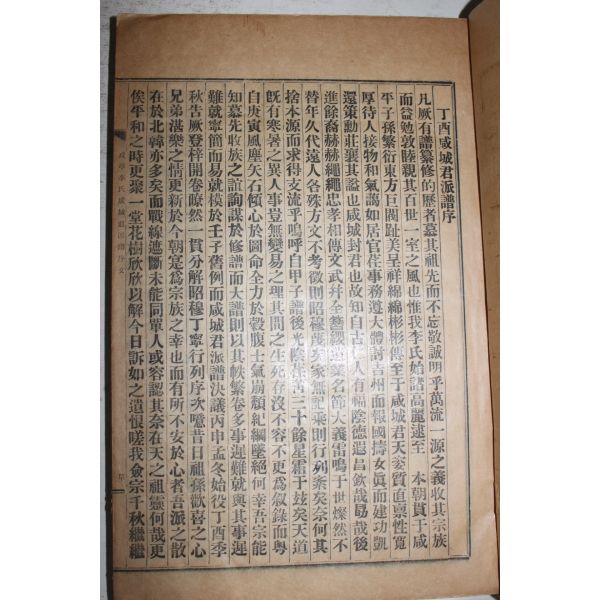 丁酉咸城君派譜序
凡厥有譜纂修的歷者慕其祖先而不忘敬誠明乎萬流一源之義收其宗族
而益勉敦睦親其百世一室之風也惟我李氏始譜高麗逮至 本朝貫于咸
平子孫繁衍東方巨閥趾美呈祥綿綿彬彬傳至于咸城君天姿質直稟性寬
厚待人接物和氣藹如居官莅事務遵大體討吉州而報國擒女眞而建功凱
還策勳莊襄其謚也咸城封君也故知自古仁人有福陰德遐昌欽哉勗哉後
進餘裔赫赫繩繩忠孝相傳文武幷全簪纓遺業名節大義雷鳴于世燦然不
替年久代遠人各殊方文不考徵則昭穆茂矣家無記乘則行列紊矣奈何其
捨本源而求得支流乎嗚呼自甲子譜後光陰荏苒三十餘星霜于玆矣天道
旣有寒暑之異人事豈無變易之理其間之生死存沒不容不更爲叙錄而粤
自庚寅風塵矢石傾心於圖命全力於穀腹士氣崩頹紀綱墜絶何幸吾宗能
知慕先收族之誼詢謀於修譜而大譜則以其帙繁卷多事遲難就與其事遲
難就寧簡而易就模於壬子舊例而咸城君派譜決議丙申孟冬始役丁酉季
秋告厥登梓開卷瞭然一貫分解昭穆丁寧行列序次噫昔日祖孫歡喜之心
兄弟湛樂之情更新於今朝寔爲宗族之幸也而有所不安於心者吾派之散
在於北韓亦多矣而戰線遮斷未能同單人或容認其奈在天之祖靈何哉更
俟平和之時更聚一堂花樹欣欣以解今日訴如之遺恨嗟我僉宗千秋繼繼
咸平李氏咸城君派譜序文